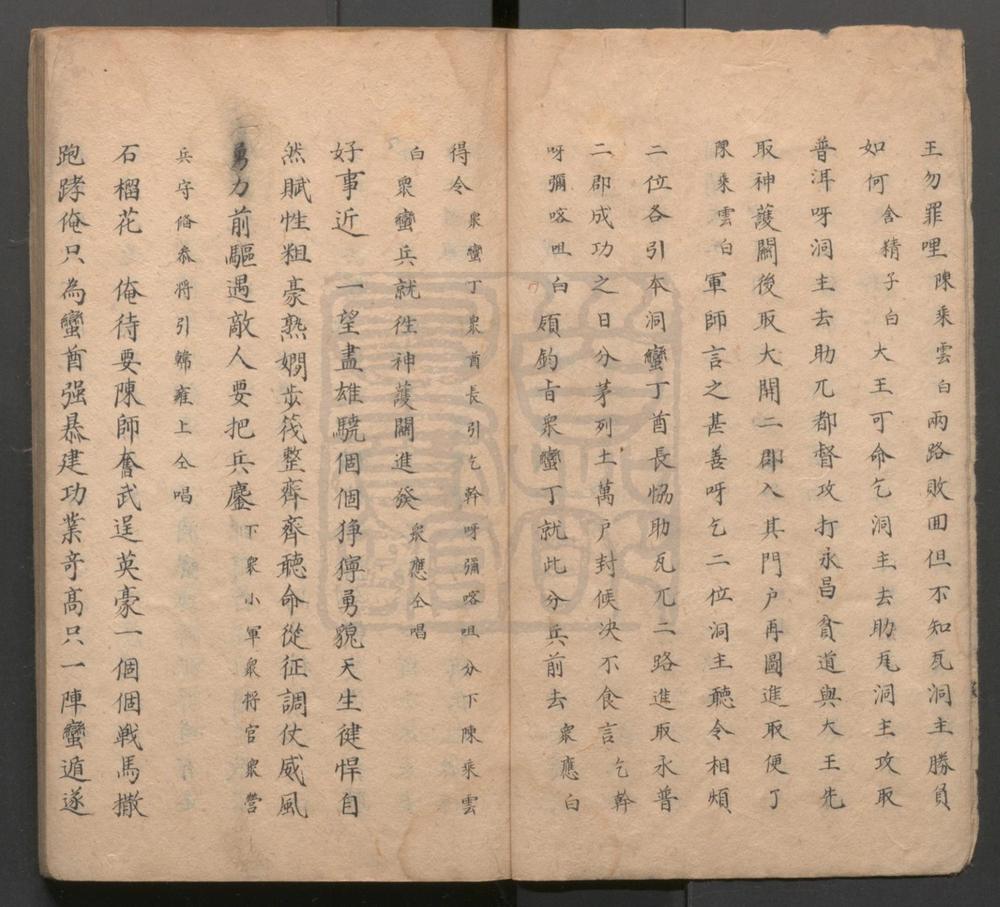 王勿罪哩陳乘雲白兩路敗囬但不知瓦洞主勝負
如何含精子白大王可命乞洞主去助瓦洞主攻取
普洱呀洞主去助兀都督攻打永昌貧道與大王先
取神護關後取大開二郡入其門户再圖進取便了
陳乘雲白軍師言之甚善呀乞二位洞主聽令相煩
二位各引本洞蠻丁酋長恊助瓦兀二路進取永普
二郡成功之日分茅列土萬户封候决不食言乞幹
呀彌喀咀白領鈞旨衆蠻丁就此分兵前去衆應白
得令衆蠻丁衆酋長引乞幹呀彌喀咀分下陳乘雲
白衆蠻兵就徃神護關進發衆應仝唱
好事近一望盡雄驍個個猙獰勇貌天生健悍自
然賦性粗豪熟嫺步伐整齊齊聽命從征調仗威風
勇力前驅遇敵人要把兵鏖下衆小軍衆将官衆營
兵守俻叅将引韓雍上仝唱
石榴花俺待要陳師奮武逞英豪一個個戦馬撒
跑跨俺只為蠻酋强暴建功業竒髙只一陣蠻遁遂